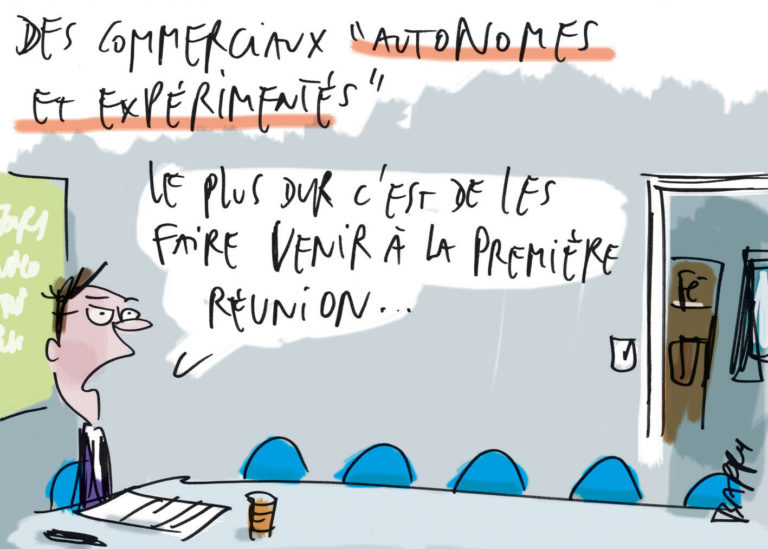 DES COMMERCIAUX "AUTONOMES
ET EXPÉRIMENTÉS"
LE PLUS DUR C'EST DE LES
FAIRE VENIR À LA PREMIÈRE
RÉUNION...